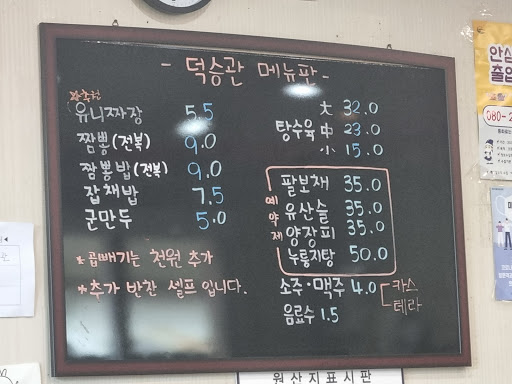 - 덕승관 메뉴판 -
☆추천
유니짜장 5.5
짬뽕(전복) 9.0
짬뽕밥(전복) 9.0
잡채밥 7.5
군만두 5.0
* 곱빼기는 천원 추가
* 추가 반찬 셀프 입니다.
탕수육 大 32.0
中 23.0
小 15.0
예약제
팔보채 35.0
유산슬 35.0
양장피 35.0
누룽지탕 50.0
소주·맥주 4.0 카스
테라
음료수 1.5
원산지표시판
안심
출입
080-2